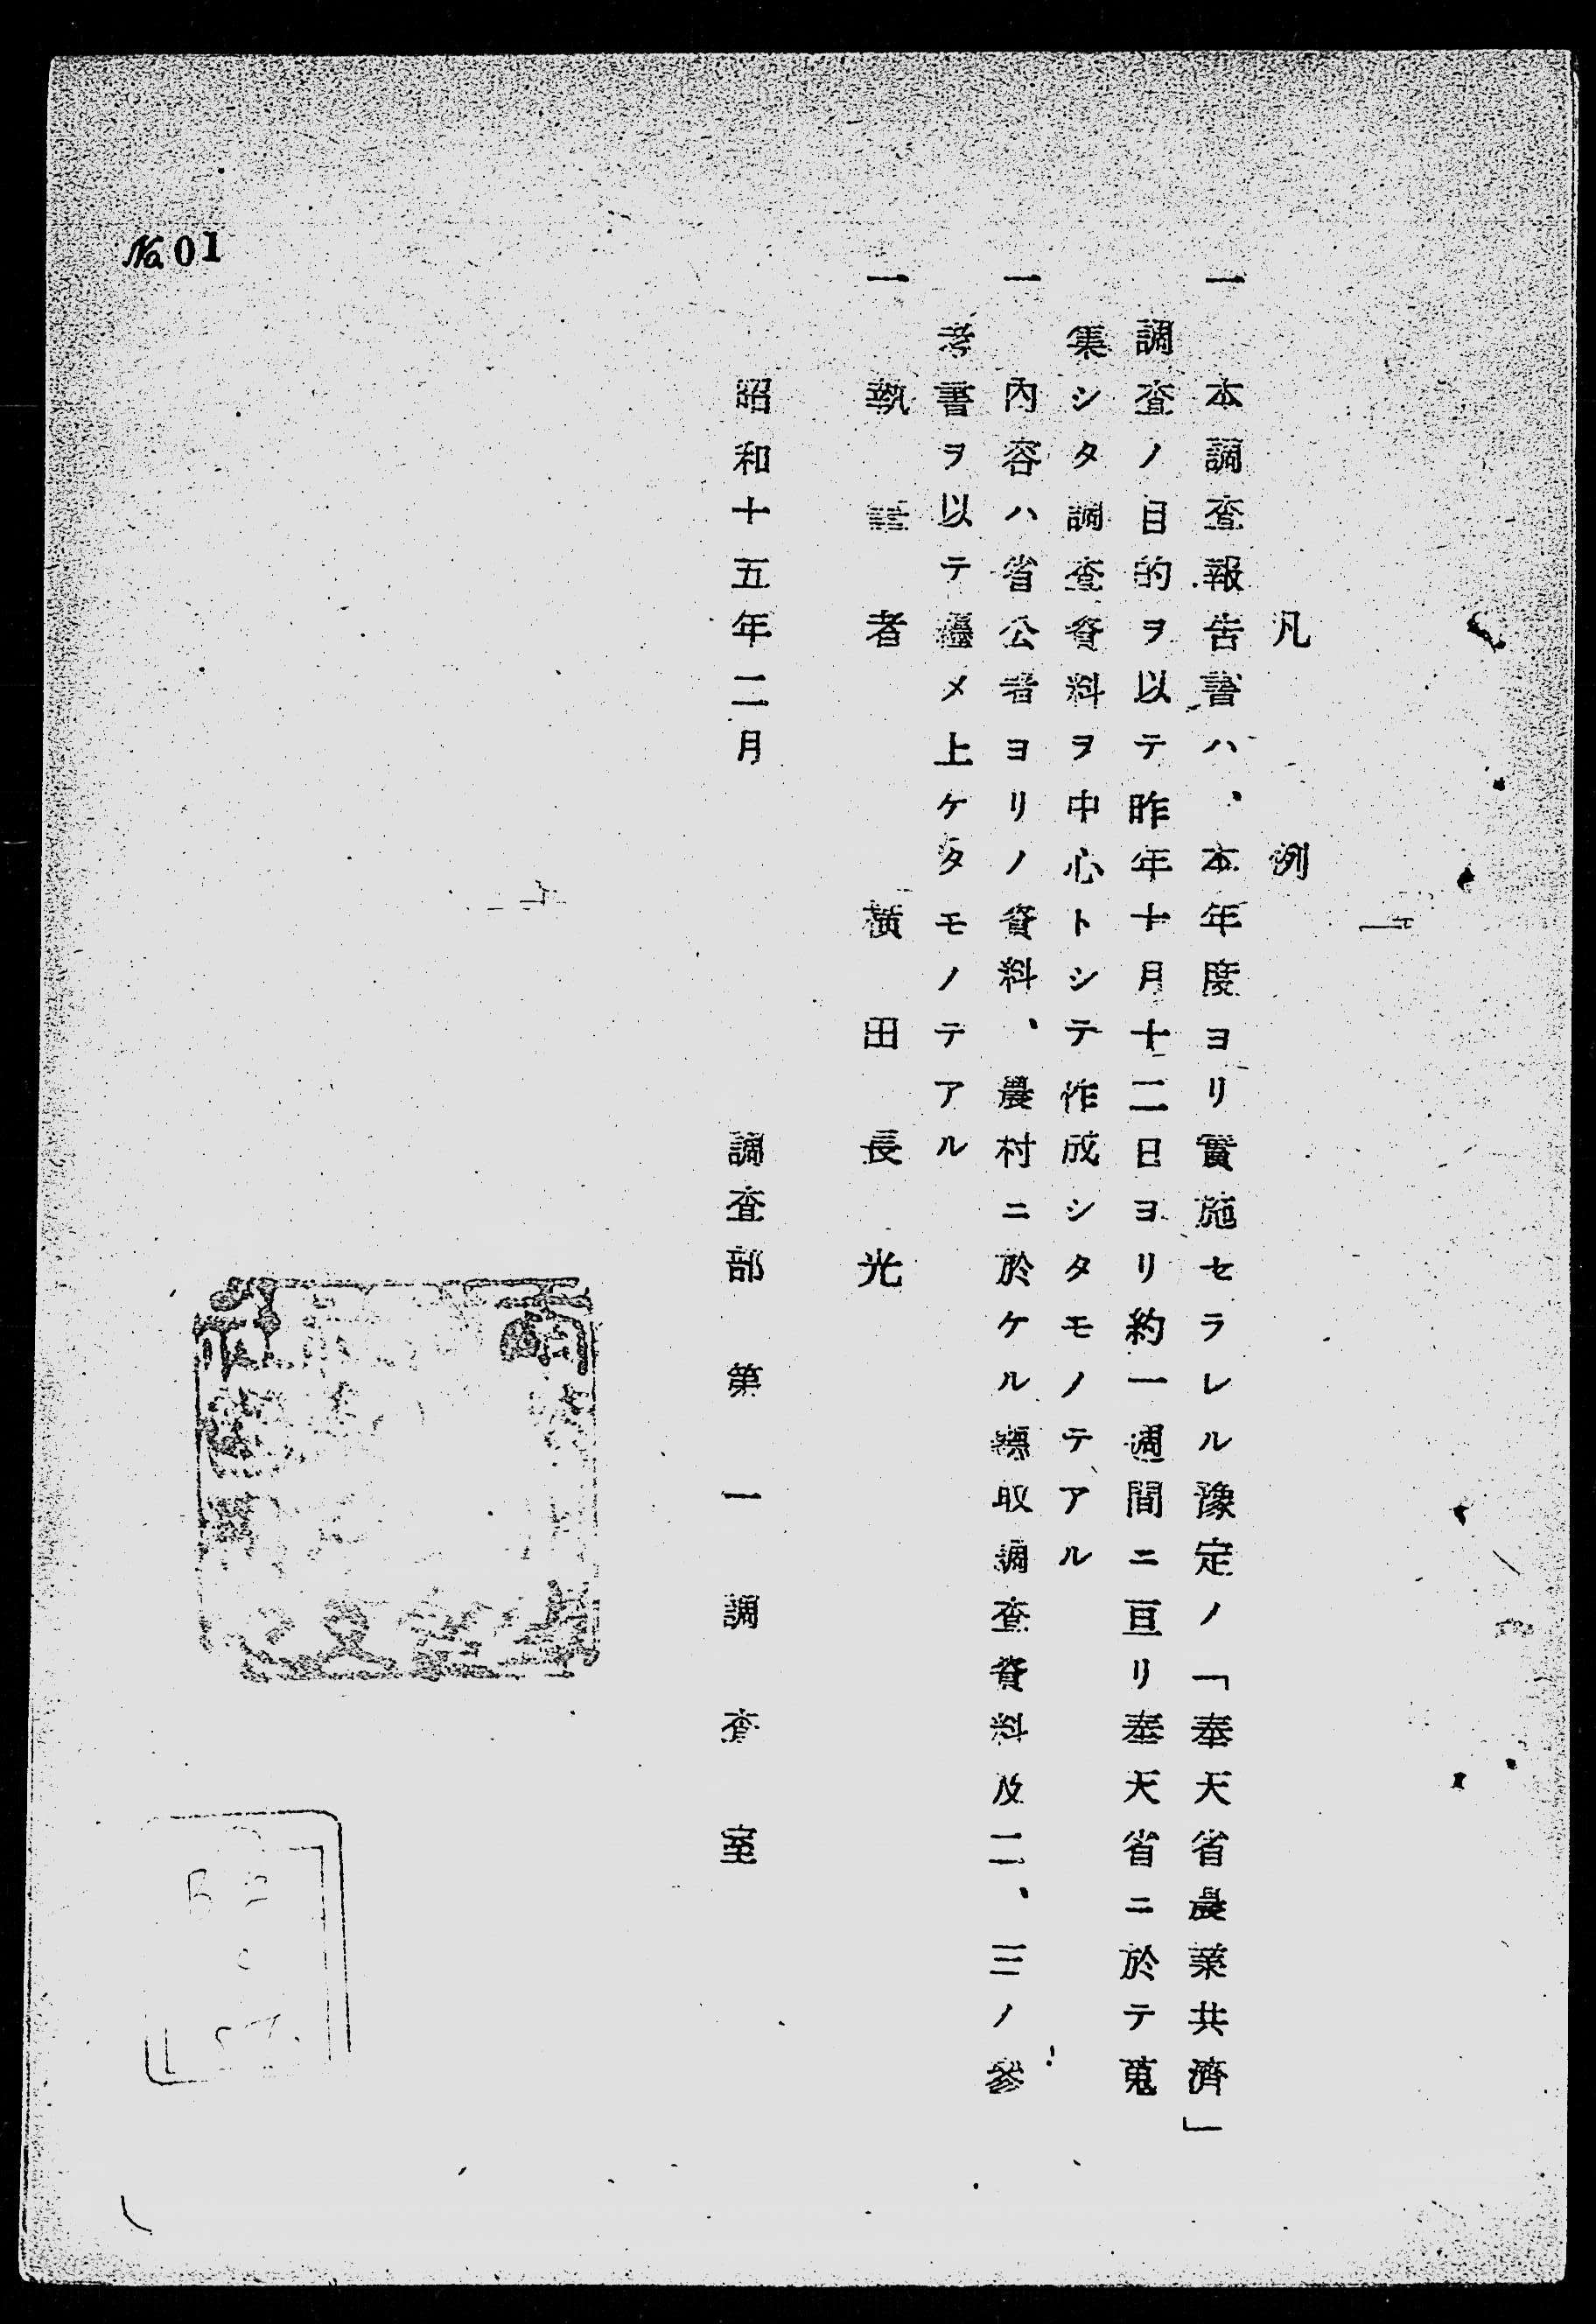 凡例
一 本調査報告書ハ、本年度ヨリ實施セラレル豫定ノ「奉天省農業共濟」
調査ノ目的ヲ以テ昨年十月十二日ヨリ約一週間ニ亘リ奉天省ニ於テ蒐
集シタ調査資料ヲ中心トシテ作成シタモノテアル
一 内容ハ省公署ヨリノ資料、農村ニ於ケル聽取調査資料及二、三ノ參
考書ヲ以テ纒メ上ケタモノテアル
一 執 者 横田長光
昭和十五年二月
調査部 第一調査室
№01